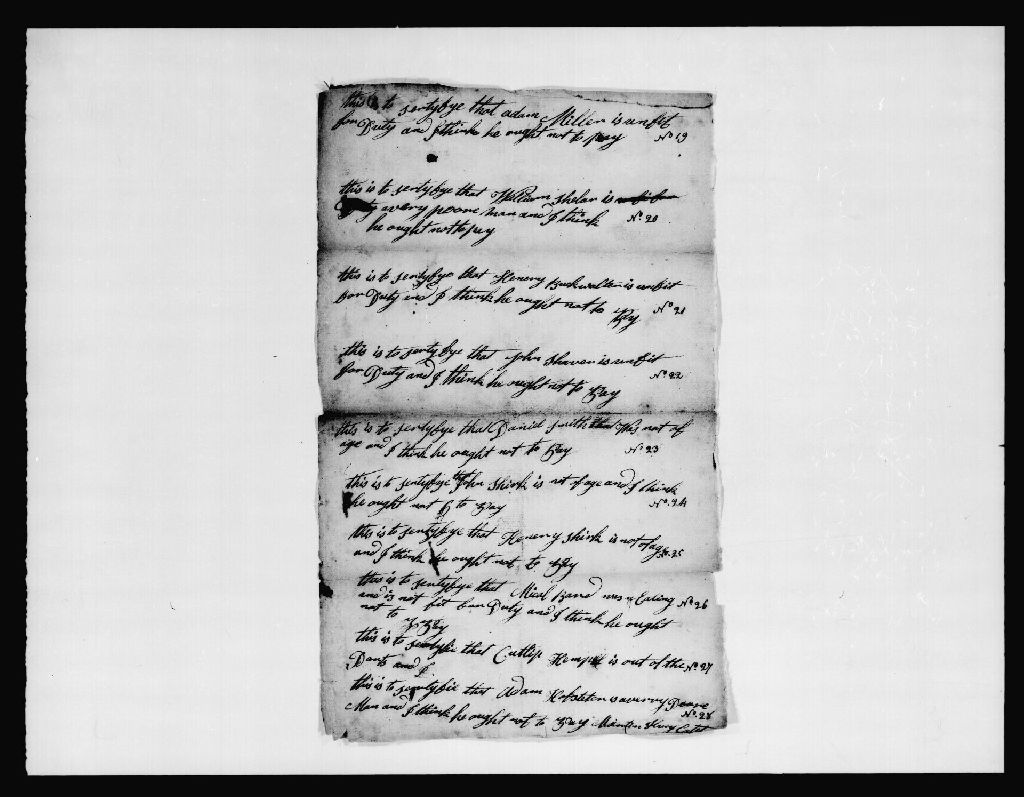 this is to sertyfye that adam Miller is unfit
for Duty and I think he ought not to pay No 19
this is to sertyfye that William Shelar is unfit for
Duty a very poore man and I think No 20
he ought not to pay
this is to sertyfye that Henery Buckwalter is unfit
for Duty and I think he ought not to Pay No 21
this is to sertyfye that John Shavar is unfit
for Duty and I think he ought not to Pay No 22
this is to sertyfye that Daniel Smith Was not of
age and I think he ought not to Pay No 23
this is to sertyfye that John Shirk is not of age and I think
he ought not to Pay No. 24
this is to sertyfye that Henery Shirk is not of age No. 25
and I think he ought not to Pay
this is to sertyfye that Micel Band was a No 26
and is not fit for Duty and I think he ought
not to Pay
this is to sertyfie that Cutlip Hempel is out of the No 27
and I
this is to sertyfie that Adam is a verry Poore
Man and I think he ought not to Pay No. 28